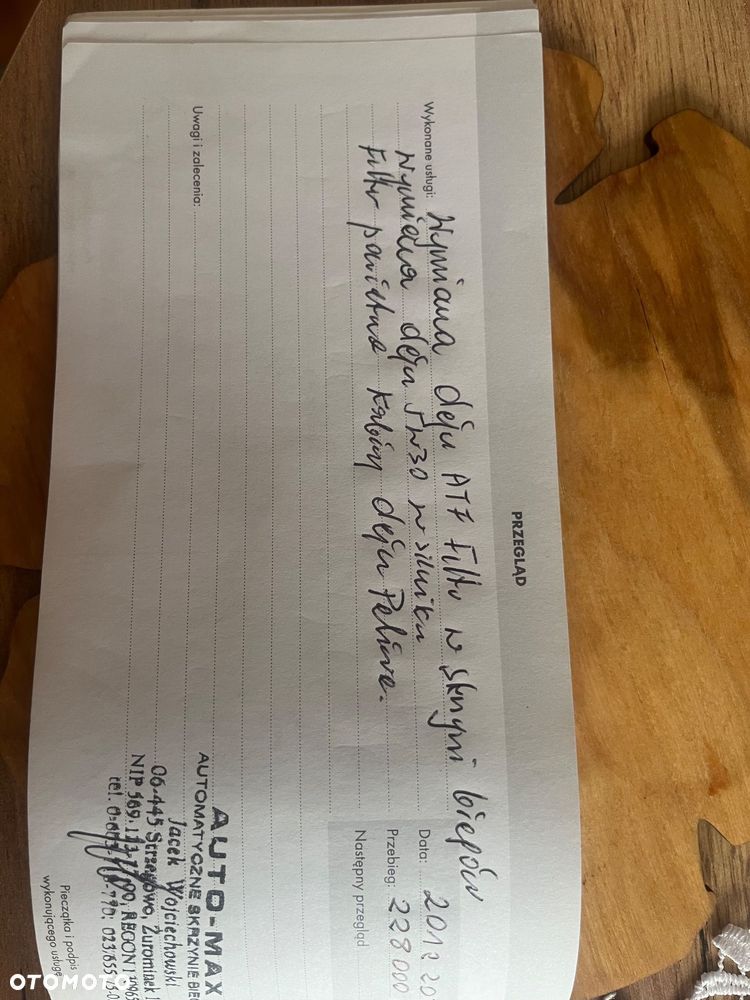 PRZEGLĄD
Wykonane usługi: Wymiana oleju ATF Filtr w skrzyni biegów
Wymiana oleju 5W30 w silniku
Filtr powietrza kabiny oleju Paliwa.
Data: 2012 20
Przebieg: 228 000
Następny przegląd
Uwagi i zalecenia:
AUTO-MAX
AUTOMATYCZNE SKRZYNIE BIE
Jacek Wojciechowski
06-445 Strzegowo, Żurominek
NIP 569-1 REGON
tel. 023/655
Pieczątka i podpis
wykonującego usługę
OTOMOTO